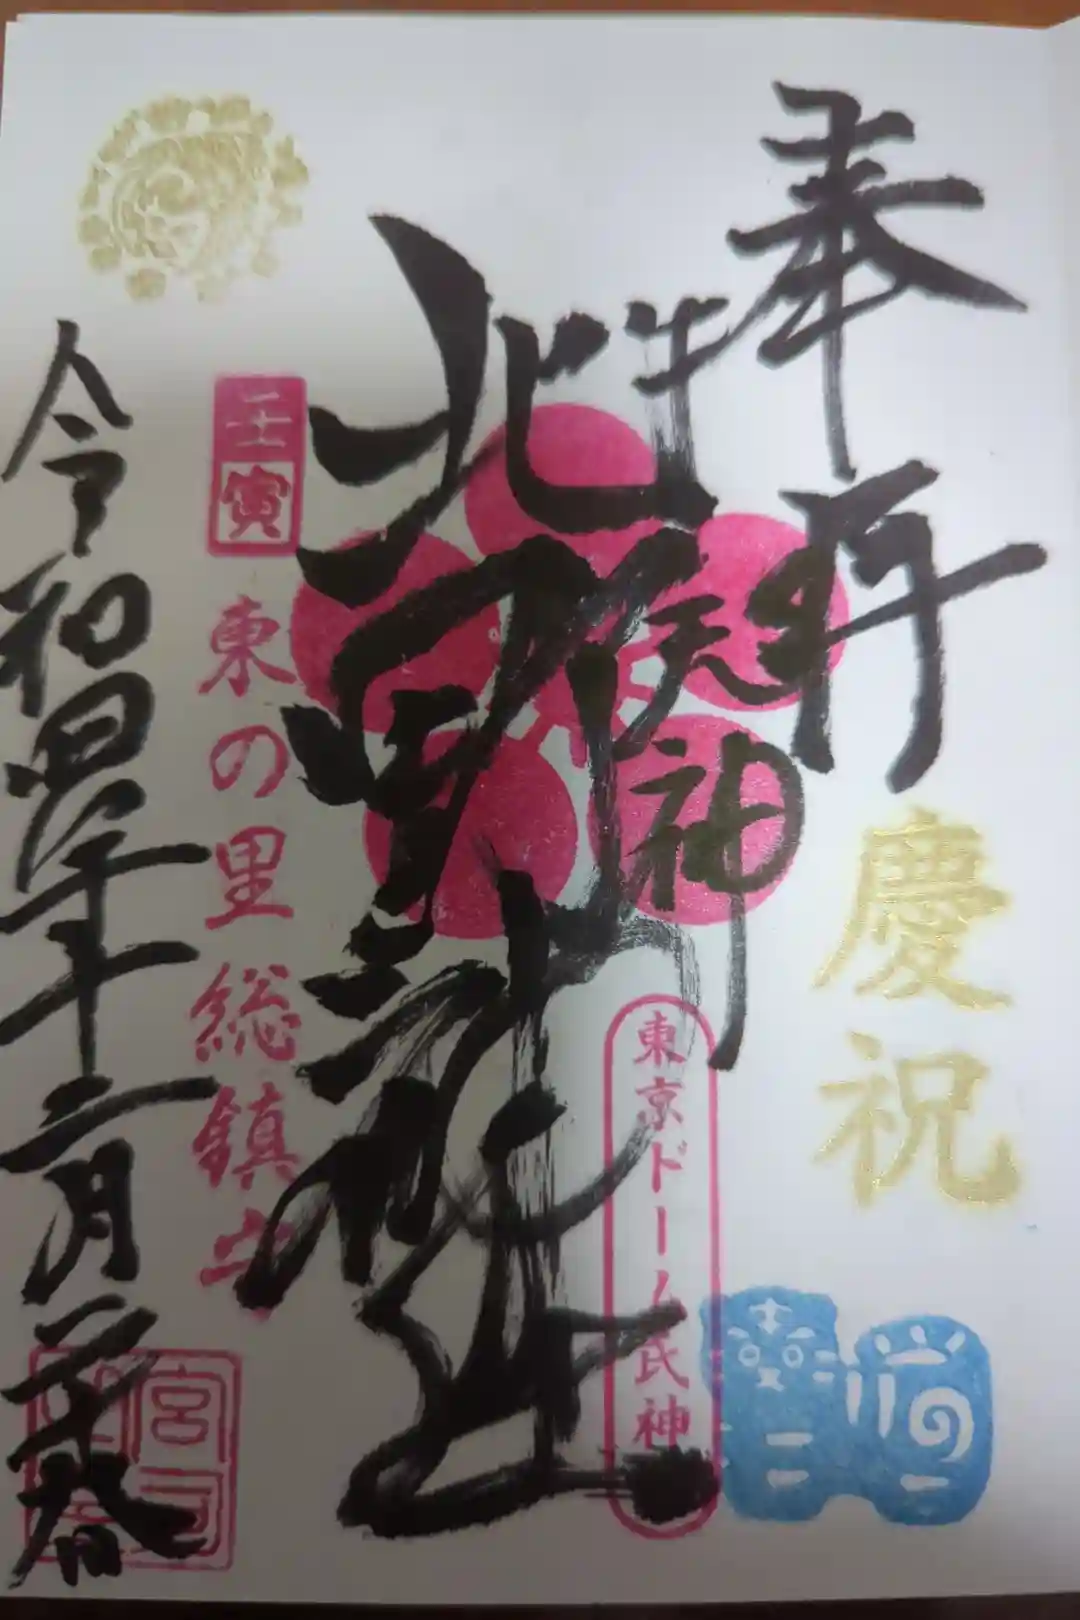 奉拝
慶祝
牛天神
東京ドーム氏神
北野神社
壬寅
東の里総鎮守
令和四年十二月二十八日
宮司